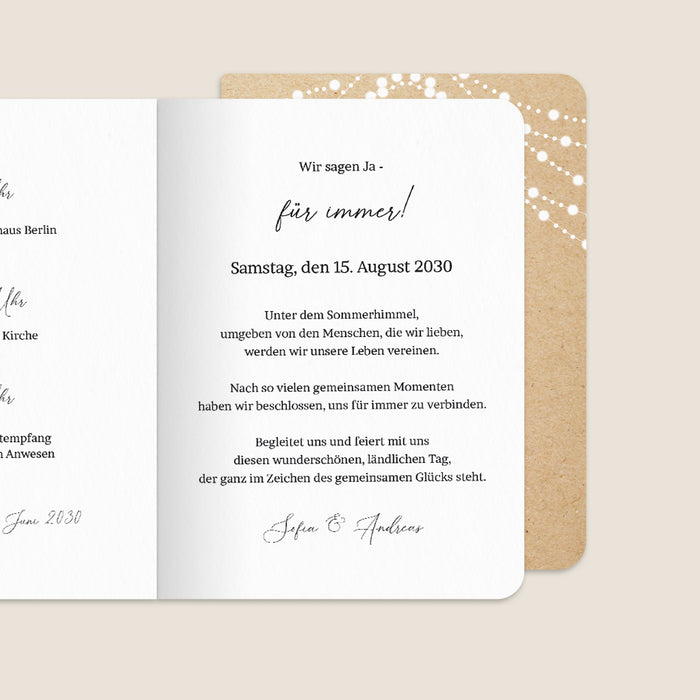 Uhr
haus Berlin
Uhr
Kirche
Uhr
tempfang
Anwesen
Juni 2030
Wir sagen Ja -
für immer!
Samstag, den 15. August 2030
Unter dem Sommerhimmel,
umgeben von den Menschen, die wir lieben,
werden wir unsere Leben vereinen.
Nach so vielen gemeinsamen Momenten
haben wir beschlossen, uns für immer zu verbinden.
Begleitet uns und feiert mit uns
diesen wunderschönen, ländlichen Tag,
der ganz im Zeichen des gemeinsamen Glücks steht.
Sofia & Andreas